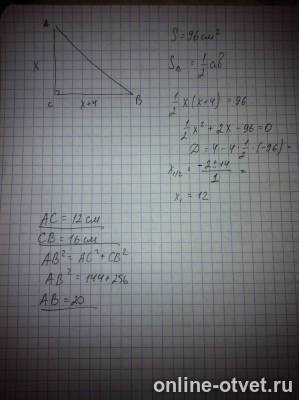 A
x
C x+4 B
S=96см²
S△=½ab
½x(x+4)=96
½x²+2x-96=0
D=4-4·½·(-96)=
x₁/₂=(-2±14)/1=
x₁=12
AC=12см
CB=16см
AB²=AC²+CB²
AB²=144+256
AB=20
online-otvet.ru